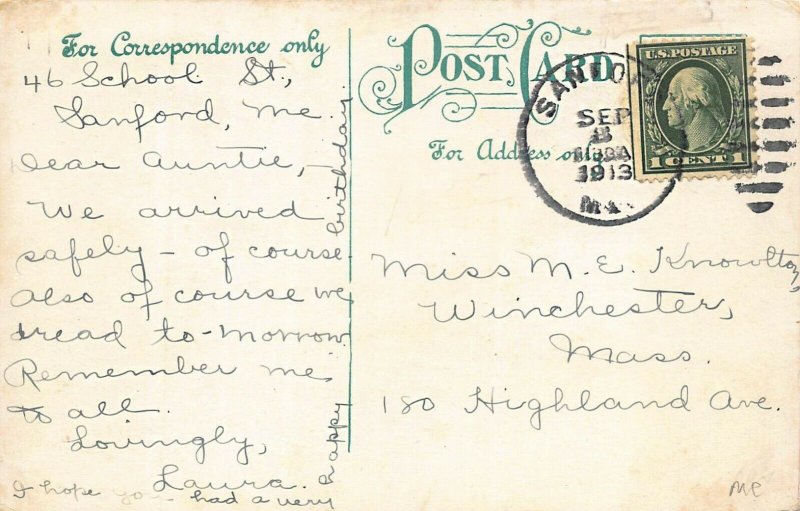 For Correspondence only
46 School St.,
Sanford, Me.
Dear Auntie,-
We arrived
safely - of course.
Also of course we
dread to-morrow.
Remember me
to all.
Lovingly,
Laura.
I hope you had a very
happy birthday.
POST CARD
For Address only
SANFO
SEP
8
1913
U.S. POSTAGE
1 CENT 1
Miss M. E. Knowlton,
Winchester,
Mass.
180 Highland Ave.
ME